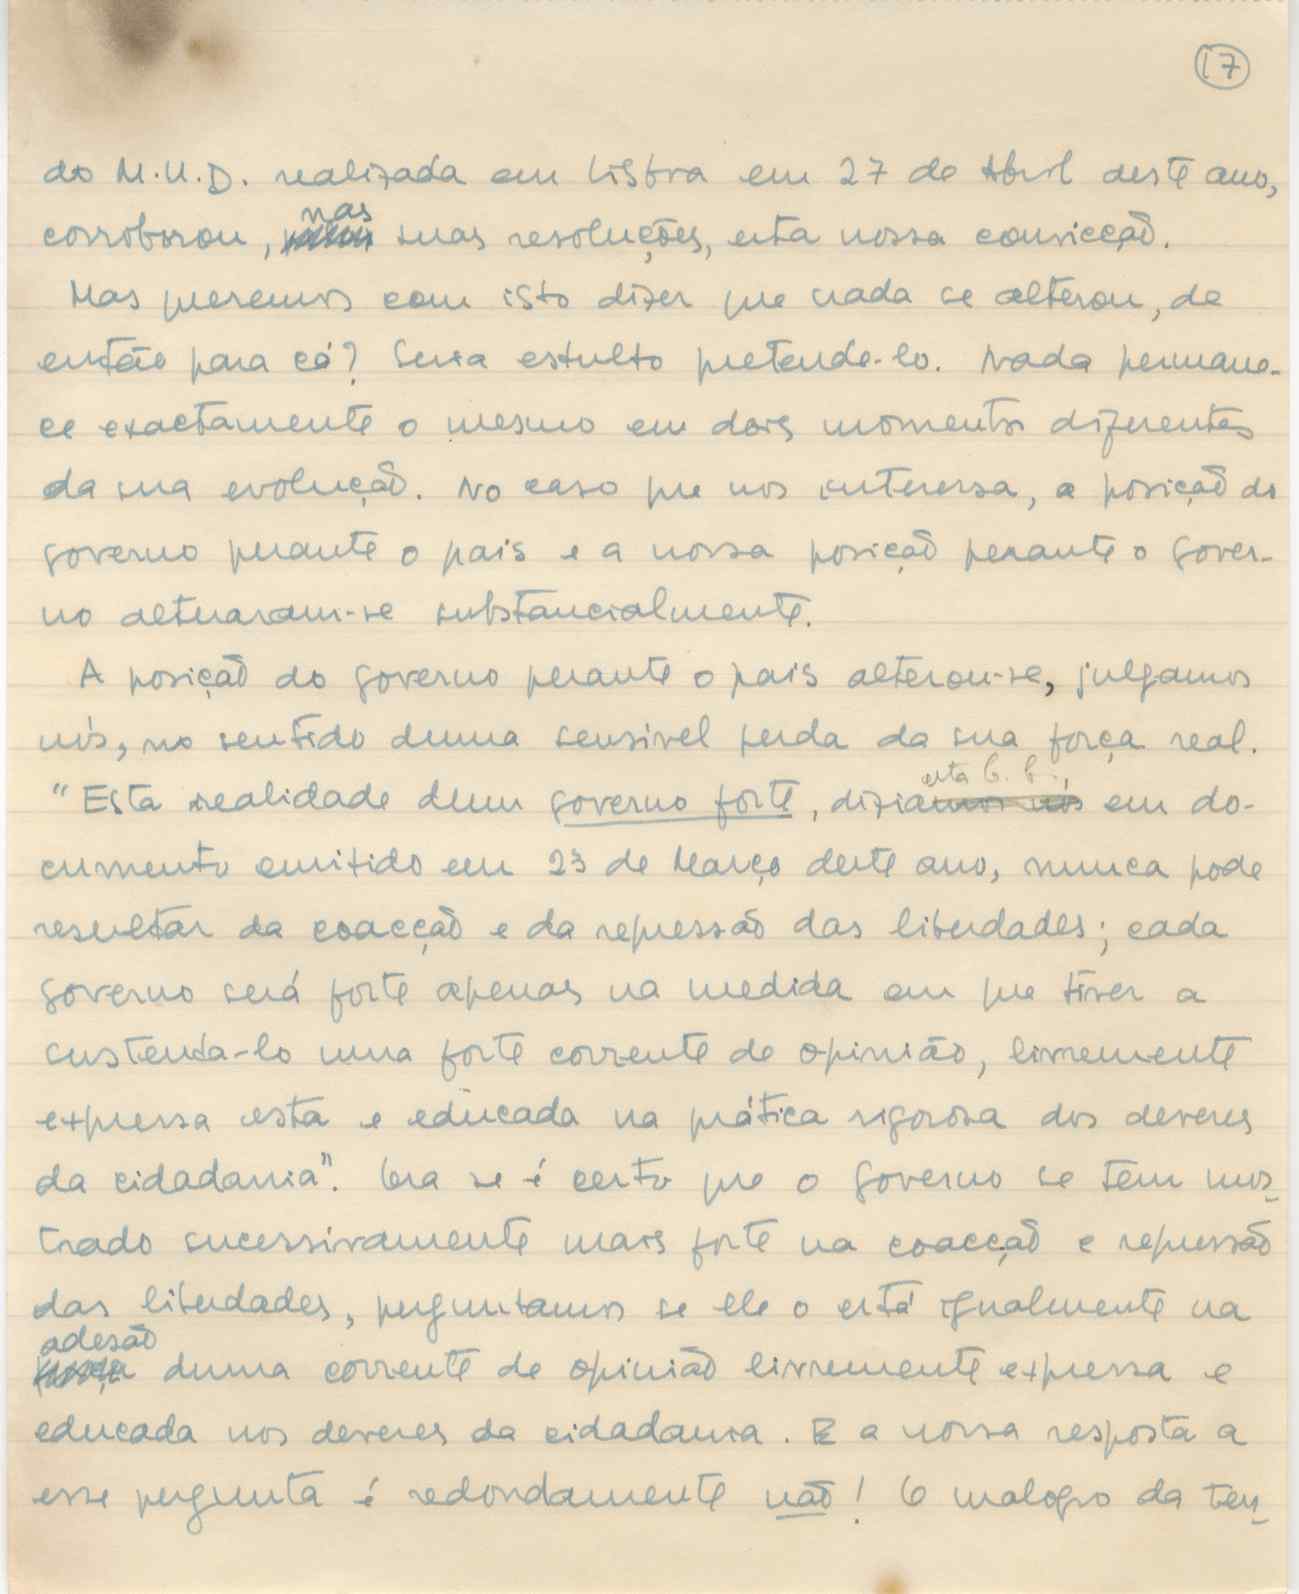 17
do M.U.D. realizada em Lisboa em 27 de Abril deste ano,
nas
corroborou, suas resoluções, esta nossa convicção.
Mas queremos com isto dizer que nada se alterou, de
então para cá? Seria estulto pretende-lo. Nada permane-
ce exactamente o mesmo em dois momentos diferentes
da sua evolução. No caso que nos interessa, a posição do
governo perante o pais e a nossa posição perante o gover-
no alteraram-se substancialmente.
A posição do governo perante o pais alterou-se, julgamos
nós, no sentido duma sensivel perda da sua força real.
esta C. C.,
"Esta realidade dum governo forte, diziamos nós em do-
cumento emitido em 23 de Março deste ano, nunca pode
resultar da coacção e da repressão das liberdades; cada
governo será forte apenas na medida em que tiver a
sustenta-lo uma forte corrente de opinião, livremente
expressa esta e educada na prática rigorosa dos deveres
da cidadania". Ora se é certo que o governo se tem mos-
trado sucessivamente mais forte na coacção e repressão
das liberdades, perguntamos se ele o está igualmente na
adesão
duma corrente de opinião livremente expressa e
educada nos deveres da cidadania. E a nossa resposta a
esse pergunta é redondamente não! O malogro da ten-